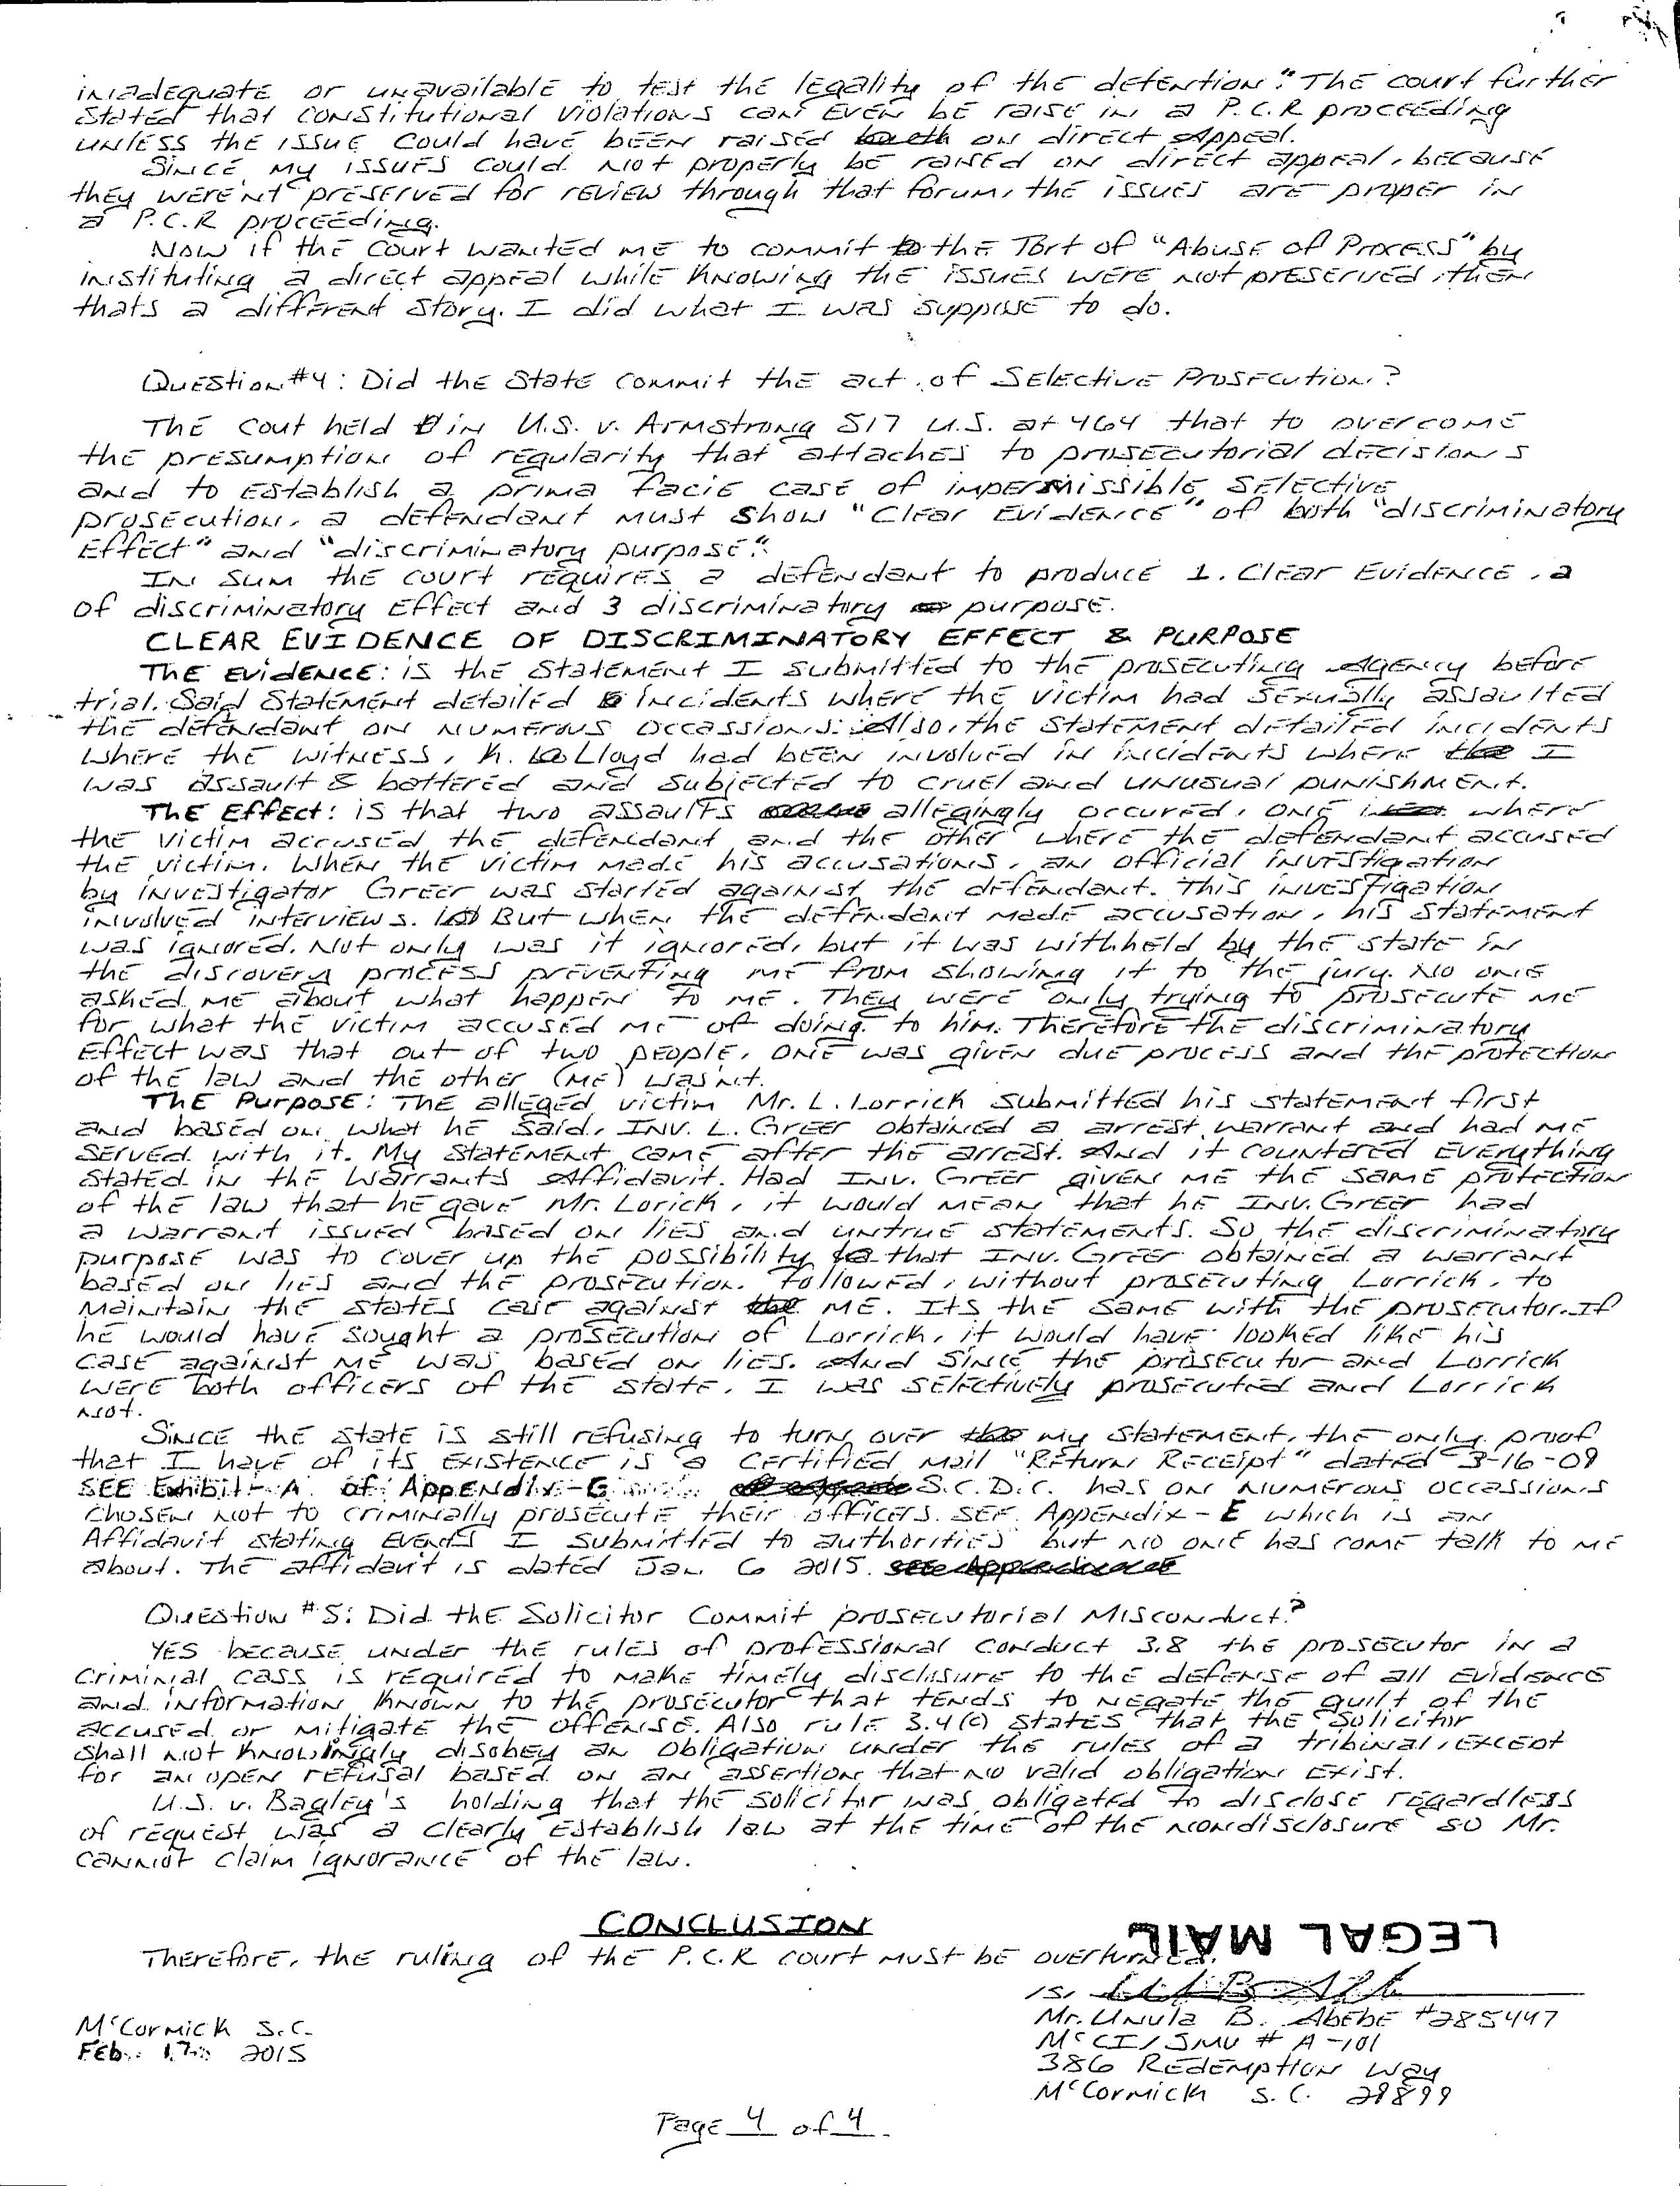 inadequate or unavailable to test the legality of the detention." The court further
stated that constitutional violations can even be raise in a P.C.R proceeding
unless the issue could have been raised on direct Appeal.
Since my issues could not properly be raised on direct appeal, because
they weren't preserved for review through that forum, the issues are proper in
a P.C.R proceeding.
Now if the Court wanted me to commit to the Tort of "Abuse of Process" by
instituting a direct appeal while knowing the issues were not preserved, then
thats a different story. I did what I was suppose to do.
Question #4: Did the State commit the act of Selective Prosecution?
The cout held in U.S. v. Armstrong 517 U.S. at 464 that to overcome
the presumption of regularity that attaches to prosecutorial decisions
and to establish a prima facie case of impermissible selective
prosecution, a defendant must show "Clear Evidence" of both "discriminatory
Effect" and "discriminatory purpose."
In sum the court requires a defendant to produce 1. Clear Evidence, 2
of discriminatory Effect and 3 discriminatory purpose.
CLEAR EVIDENCE OF DISCRIMINATORY EFFECT & PURPOSE
The Evidence: is the statement I submitted to the prosecuting Agency before
trial. Said Statement detailed incidents where the victim had sexually assaulted
the defendant on numerous occassions. Also, the statement detailed incidents
where the witness, K. Lloyd had been involved in incidents where I
was assault & battered and subjected to cruel and unusual punishment.
The Effect: is that two assaults allegingly occured, one where
the victim accused the defendant and the other where the defendant accused
the victim. When the victim made his accusations, an official investigation
by investigator Greer was started against the defendant. This investigation
involved interviews. But when the defendant made accusation, his statement
was ignored. Not only was it ignored, but it was withheld by the state in
the discovery process preventing me from showing it to the jury. No one
asked me about what happen to me. They were only trying to prosecute me
for what the victim accused me of doing to him. Therefore the discriminatory
Effect was that out of two people, one was given due process and the protection
of the law and the other (me) wasn't.
The Purpose: The alleged victim Mr. L. Lorrick submitted his statement first
and based on what he said, Inv. L. Greer obtained a arrest warrant and had me
served with it. My statement came after the arrest. And it countered everything
stated in the warrants Affidavit. Had Inv. Greer given me the same protection
of the law that he gave Mr. Lorick, it would mean that he Inv. Greer had
a warrant issued based on lies and untrue statements. So the discriminatory
purpose was to cover up the possibility that Inv. Greer obtained a warrant
based on lies and the prosecution followed, without prosecuting Lorrick, to
maintain the states case against me. Its the same with the prosecutor. If
he would have sought a prosecution of Lorrick, it would have looked like his
case against me was based on lies. And since the prosecutor and Lorrick
were both officers of the state, I was selectively prosecuted and Lorrick
not.
Since the state is still refusing to turn over my statement, the only proof
that I have of its existence is a certified mail "Return Receipt" dated 3-16-09
SEE Exhibit-A of Appendix-G S.C.D.C. has on numerous occassions
chosen not to criminally prosecute their officers. SEE Appendix-E which is an
Affidavit stating events I submitted to authorities but no one has come talk to me
about. The affidavit is dated Jan 6 2015.
Question #5: Did the Solicitor Commit prosecutorial Misconduct?
Yes because under the rules of professional conduct 3.8 the prosecutor in a
criminal cass is required to make timely disclosure to the defense of all evidence
and information known to the prosecutor that tends to negate the guilt of the
accused or mitigate the offense. Also rule 3.4(c) states that the solicitor
shall not knowlingly disobey an obligation under the rules of a tribinal, except
for an open refusal based on an assertion that no valid obligation exist.
U.S. v. Bagley's holding that the solicitor was obligated to disclose regardless
of request was a clearly establish law at the time of the nondisclosure so Mr.
cannot claim ignorance of the law.
CONCLUSION
Therefore, the ruling of the P.C.R court must be overturned.
LEGAL MAIL
/s/
Mr. Unula B. Abebe #285447
McCI/SMU # A-101
386 Redemption Way
McCormick S.C. 29899
McCormick S.C.
Feb. 17 2015
Page 4 of 4.